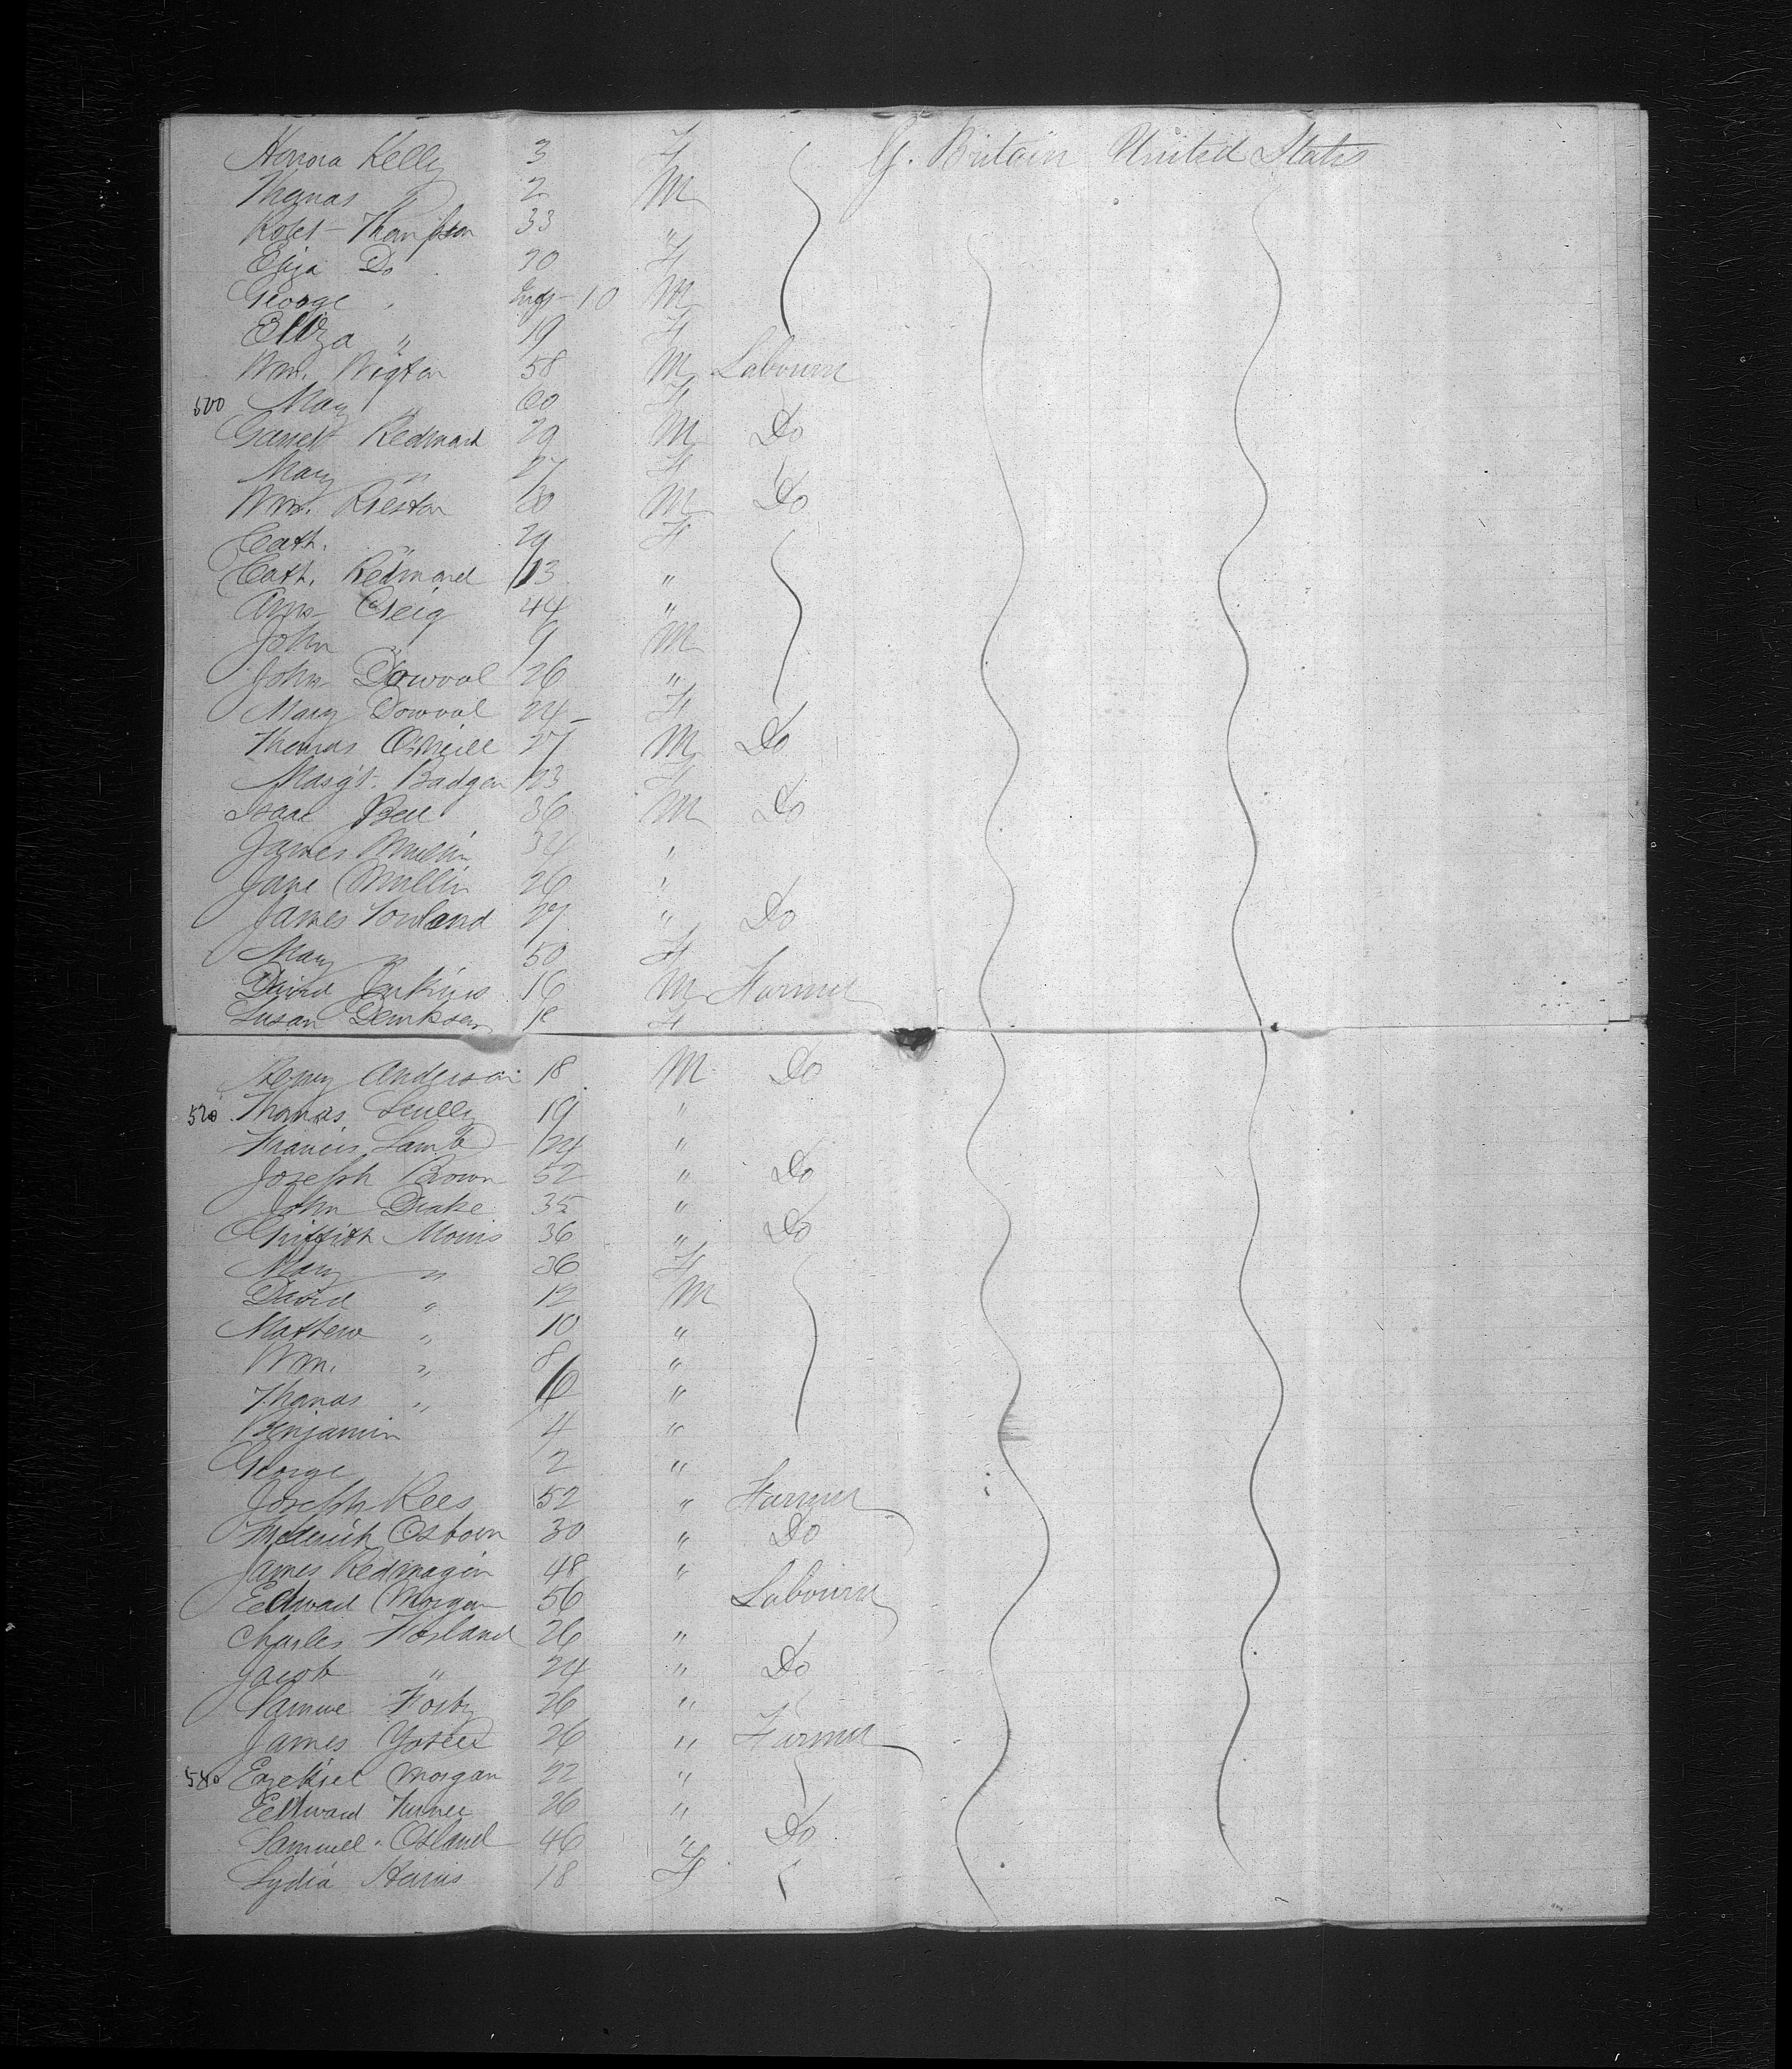 Honora Kelly 3 F G. Britain United States
Thomas " 2 M
Robt Thompson 33 "
Eliza Do 30 F
George " Inf 10 M
Eliza " 19 F
Wm. Wigton 58 M Labourer
500 Mary " 60 F
Garrett Redmond 29 M Do
Mary " 27 F
Wm. Preston 30 M Do
Cath. " 29 F
Cath. Redmond 13 "
Ann Creig 44 "
John " 9 M
John Dowval 26 "
Mary Dowval 24 F
Thomas O'Neill 27 M Do
Margt. Badger 23 F
Isaac Bell 36 M Do
James Mullin 34 "
Jane Mullin 26 "
James Rowland 27 " Do
Mary " 50 F
David Jenkins 16 M Farmer
Susan 18 F
Henry Anderson 18 M Do
520 Thomas Scully 19 "
Francis Lamb 24 "
Joseph Brown 52 " Do
John Drake 35 "
Griffith Morris 36 " Do
Mary " 36 F
David " 12 M
Mathew " 10 "
Wm. " 8 "
Thomas " 6 "
Benjamin 4 "
George 2 "
Joseph Rees 52 " Farmer
Frederick Osborn 30 " Do
James Redmagin 48 "
Edward Morgan 56 Labourer
Charles Hosland 26 "
Jacob " 24 " Do
26 "
James 26 " Farmer
540 Ezekiel Morgan 22 "
Edward Turner 26 "
Samuel Osland 46 " Do
Lydia Harris 18 F